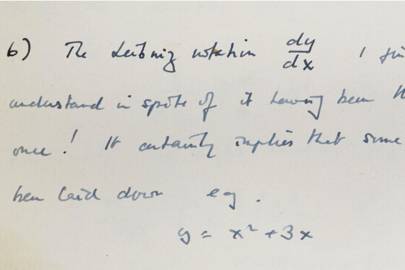 6) The Leibniz notation dy/dx I
understand in spite of it having been
once! It certainly implies that some
been laid down e.g.
y = x² + 3x